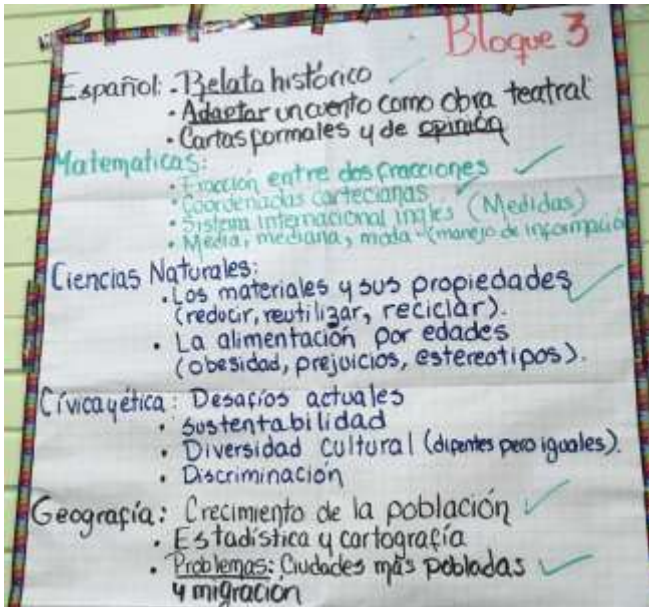 Bloque 3
Español: • Relato histórico
• Adaptar un cuento como obra teatral
• Cartas formales y de opinión
Matematicas:
• Fracción entre dos fracciones
• Coordenadas cartecianas
• Sistema internacional ingles (Medidas)
• Media, mediana, moda - (manejo de información
Ciencias Naturales:
• Los materiales y sus propiedades
(reducir, reutilizar, reciclar).
• La alimentación por edades
(obesidad, prejuicios, estereotipos).
Cívica y ética: Desafíos actuales
• sustentabilidad
• Diversidad cultural (diferentes pero iguales).
• Discriminación
Geografía: Crecimiento de la población
• Estadística y cartografía
• Problemas: Ciudades más pobladas
y migración